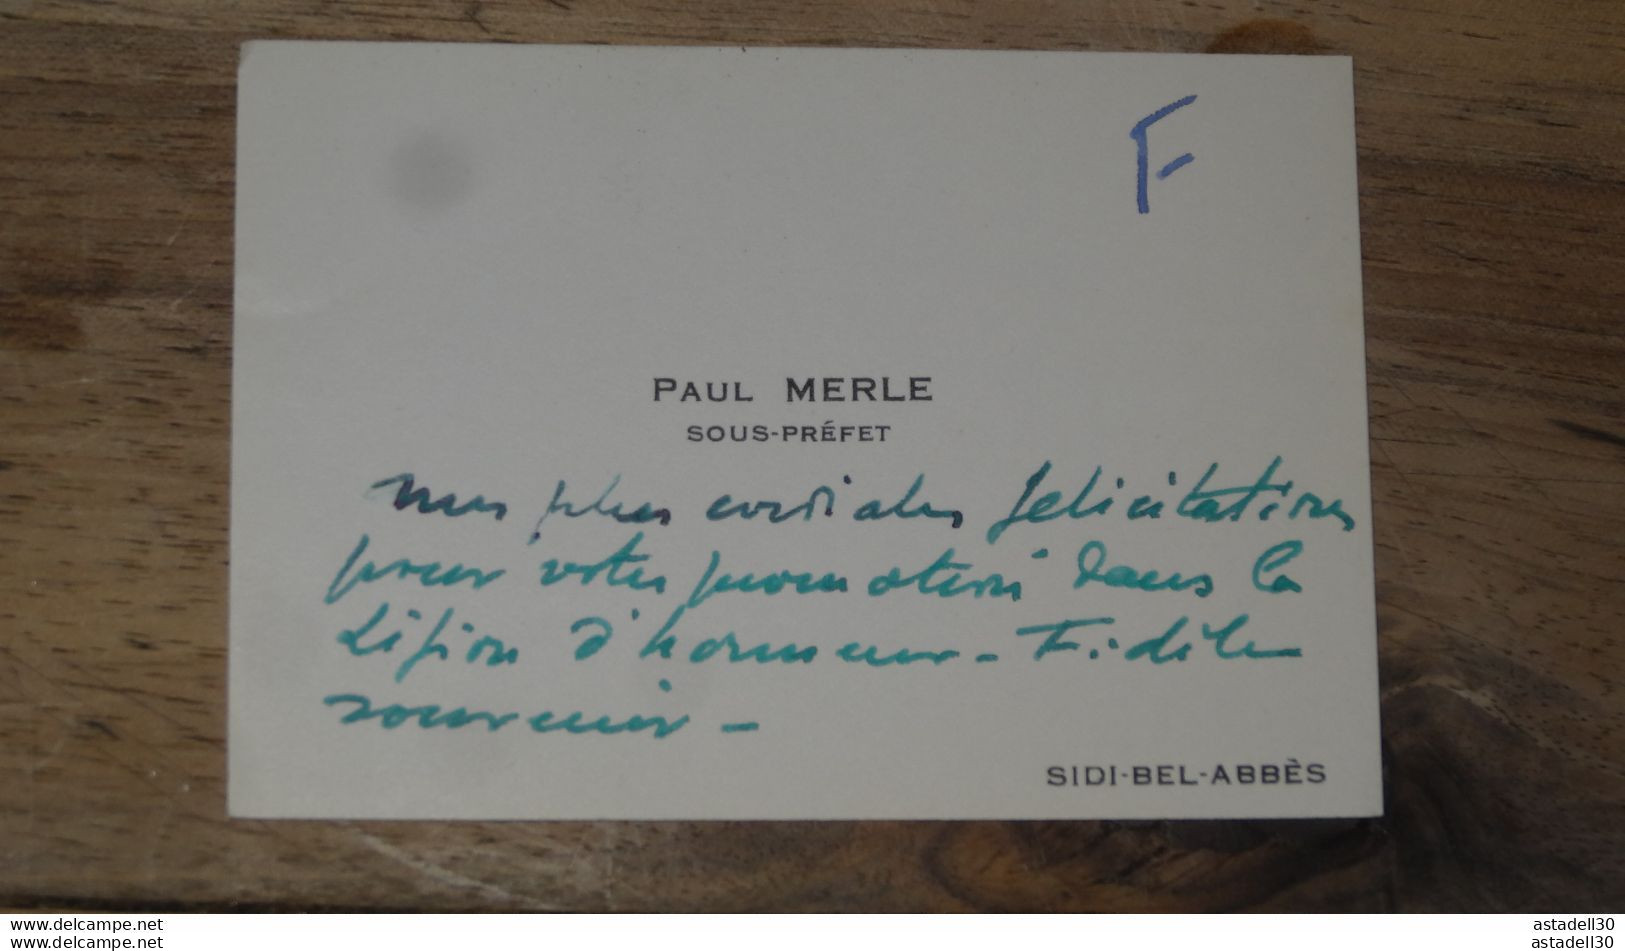 F
PAUL MERLE
SOUS-PRÉFET
mes plus cordiales félicitations
pour votre promotion dans la
Légion d'honneur - Fidèle
souvenir -
SIDI-BEL-ABBÈS
www.delcampe.net
www.delcampe.net
astadell30
astadell30